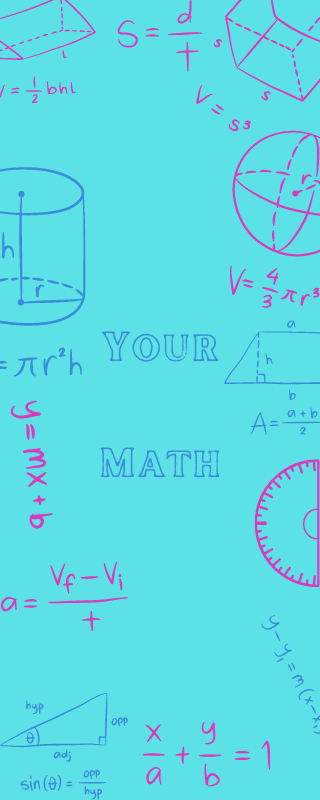 S = d/t
l
V = 1/2 bhl
s
s
V = s³
r
V = 4/3 πr³
h
r
= πr²h
YOUR
a
h
b
A = a+b/2
y = mx + b
MATH
a = Vf − Vi / t
y − y₁ = m(x − x₁
hyp
opp
θ
adj
sin(θ) = opp/hyp
x/a + y/b = 1